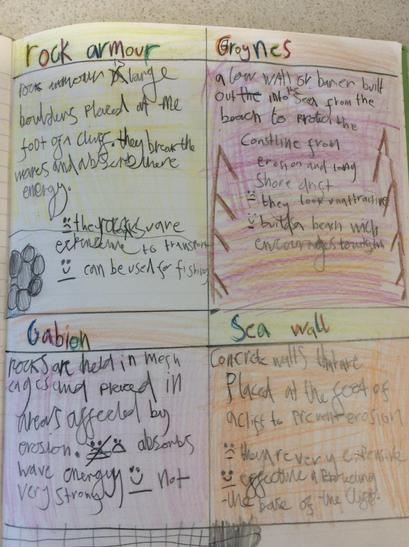 rock armour
rock armour is large
boulders placed at the
foot of a cliff. they break the
waves and absorb there
energy.
the rocks are
expensive to transport
can be used for fishing
Groynes
a low wall or barrier built
out the into sea from the
beach to protect the
Constline from
erosion and long
shore drift
they look unattractive
builds a beach wich
encourages tourism
Gabion
rocks are held in mesh
cages and placed in
areas affected by
erosion. absorbs
wave energy not
very strong
Sea wall
Concrete walls that are
Placed at the foot of
a cliff to prevent erosion
they are very expensive
effective in protecting
the base of the cliff.